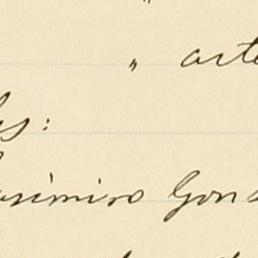 " arte
s:
asimiro Gon